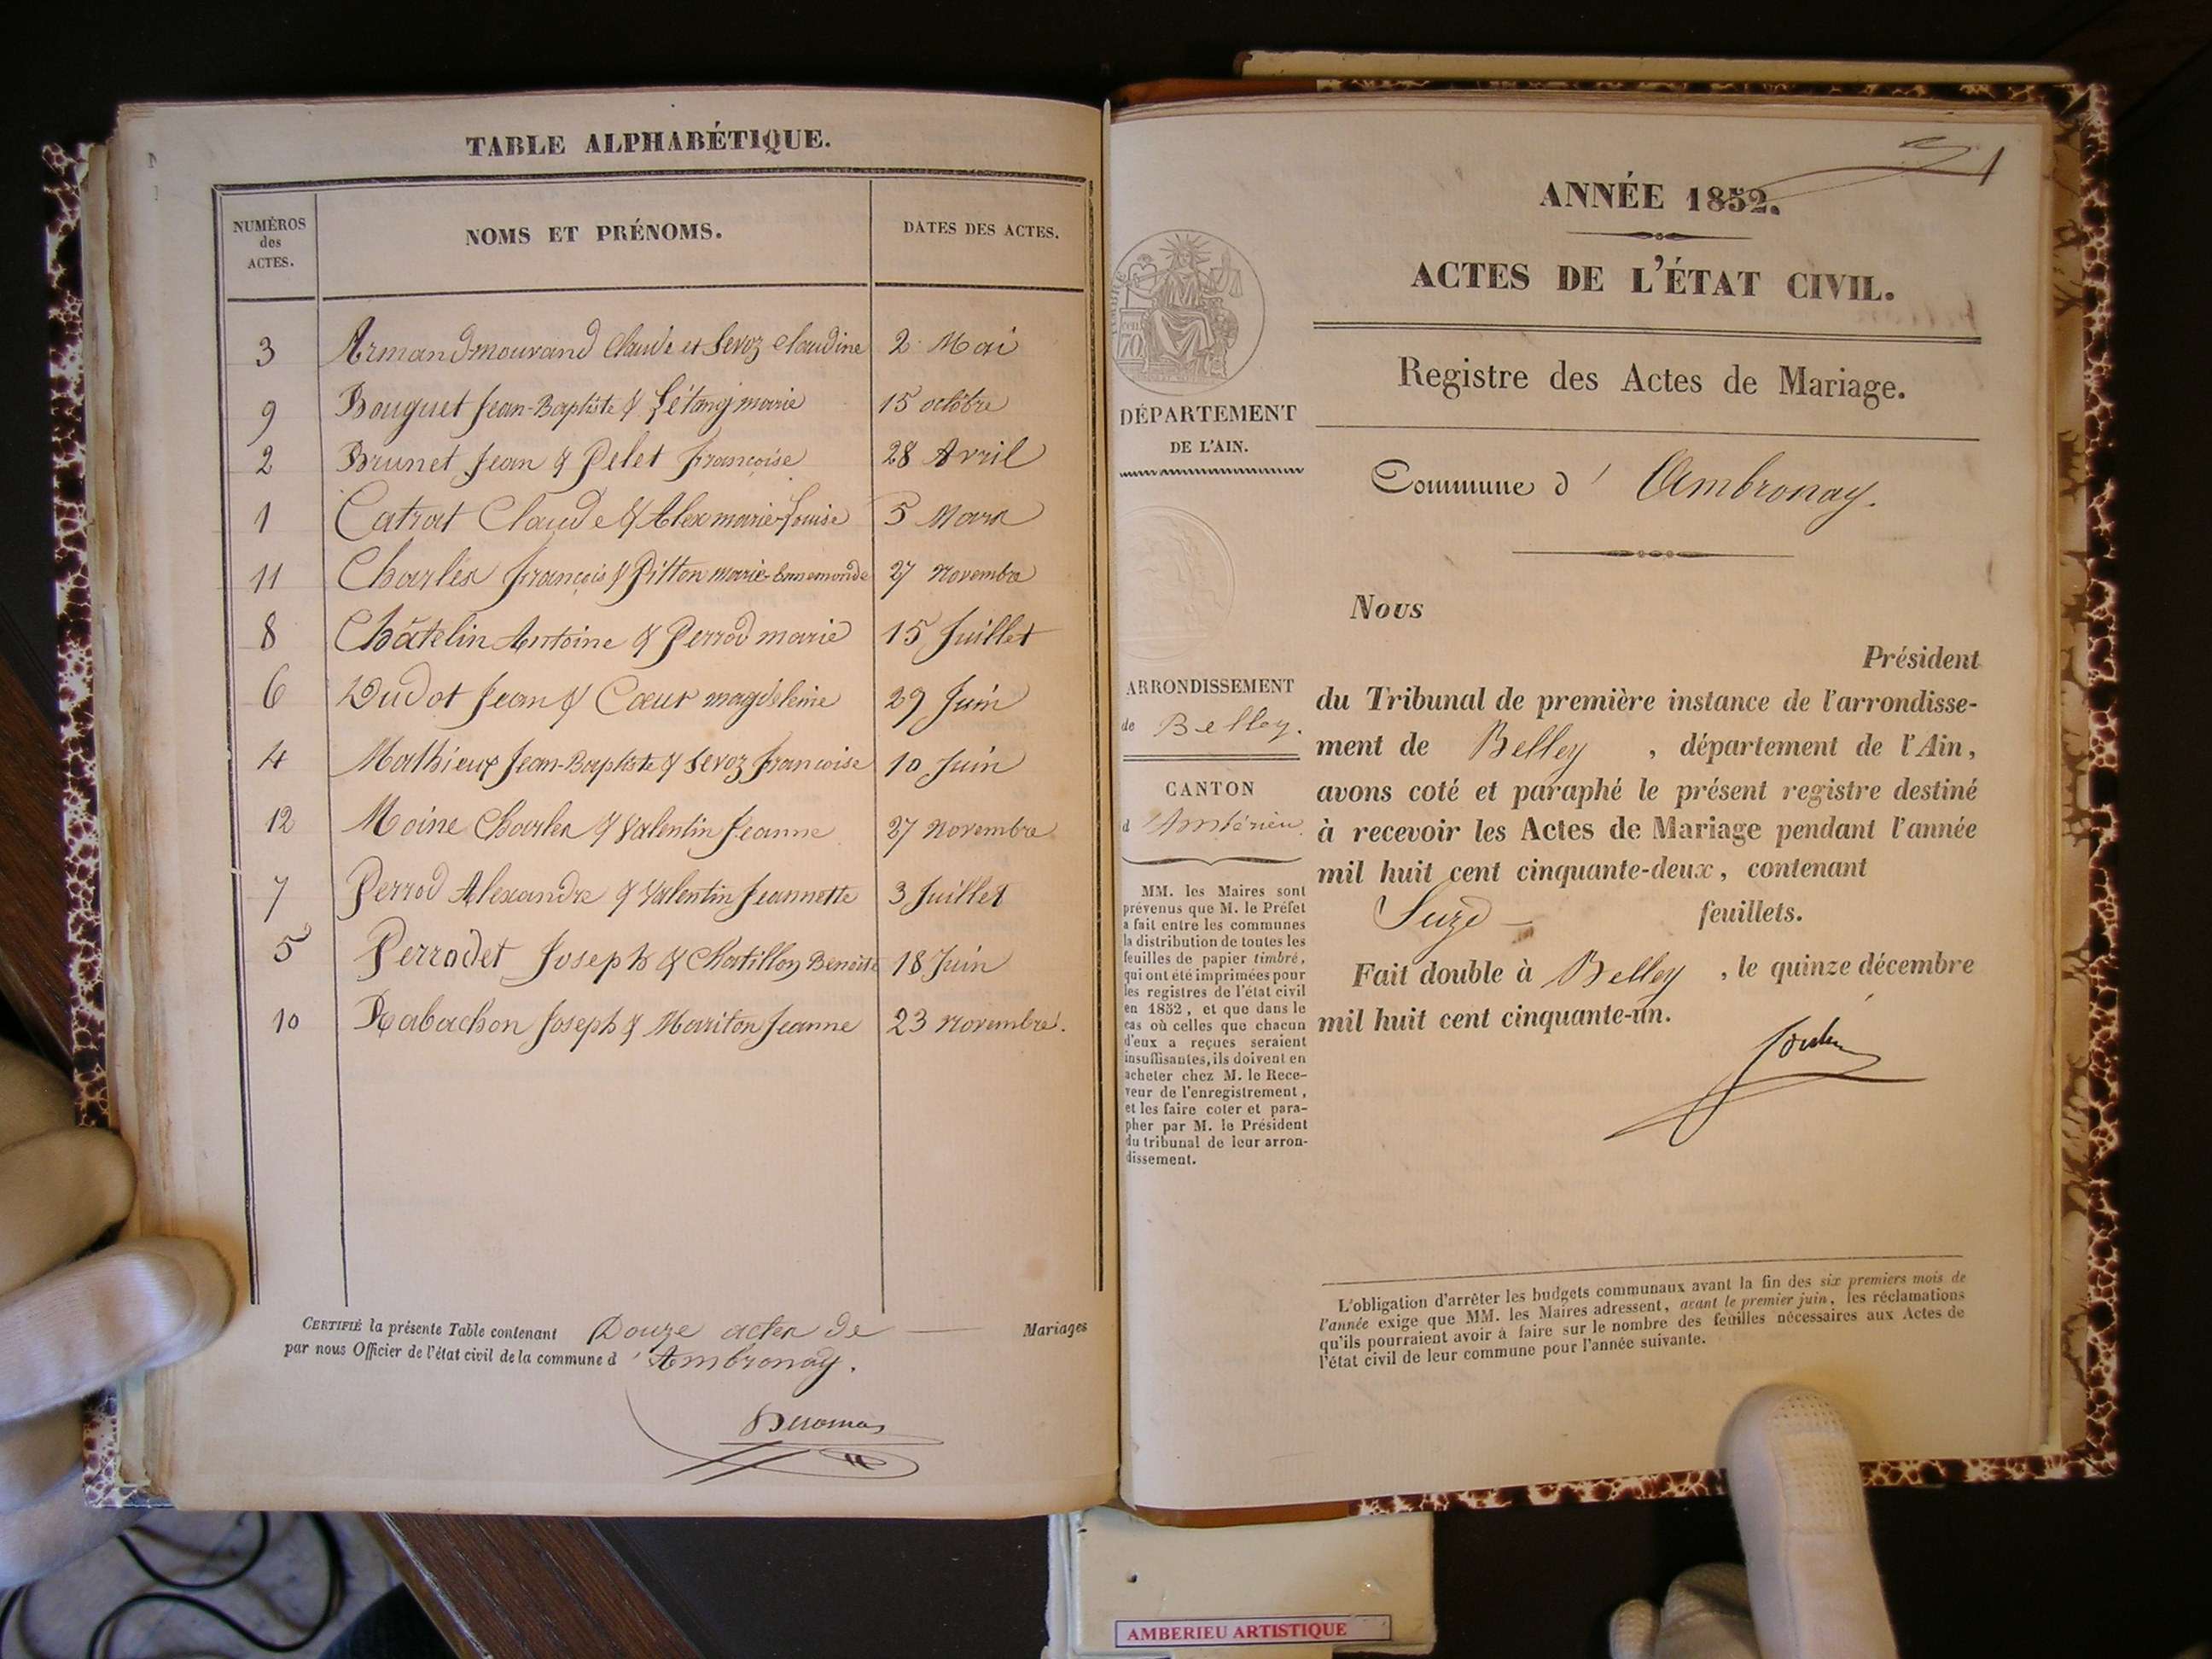 TABLE ALPHABÉTIQUE.
NUMÉROS des ACTES.
NOMS ET PRÉNOMS.
DATES DES ACTES.
3 Armand mourand Claude et Levoz Claudine 2 Mai
9 Bouguet Jean-Baptiste & Létang marie 15 octobre
2 Brunet Jean & Pelet Françoise 28 Avril
1 Catrat Claude & Alex marie-Louise 5 Mars
11 Charles François & Pitton marie-Ennemonde 27 Novembre
8 Châtelin Antoine & Perrod marie 15 Juillet
6 Dudot Jean & Cœur magdeleine 29 Juin
4 Mathieux Jean-Baptiste & Levoz francoise 10 Juin
12 Moine Charles & Valentin Jeanne 27 Novembre
7 Perrod Alexandre & Valentin Jeannette 3 Juillet
5 Perrodet Joseph & Chatillon Benoite 18 Juin
10 Rabachon Joseph & Mariton Jeanne 23 Novembre.
CERTIFIÉ la présente Table contenant Douze actes de Mariages
par nous Officier de l'état civil de la commune d'Ambronay.
1
ANNÉE 1852.
ACTES DE L'ÉTAT CIVIL.
Registre des Actes de Mariage.
TIMBRE
70
DÉPARTEMENT
DE L'AIN.
Commune d'Ambronay.
ARRONDISSEMENT
de Belley.
CANTON
d'Ambérieu
MM. les Maires sont
prévenus que M. le Préfet
a fait entre les communes
la distribution de toutes les
feuilles de papier timbré,
qui ont été imprimées pour
les registres de l'état civil
en 1852, et que dans le
cas où celles que chacun
d'eux a reçues seraient
insuffisantes, ils doivent en
acheter chez M. le Rece-
veur de l'enregistrement,
et les faire coter et para-
pher par M. le Président
du tribunal de leur arron-
dissement.
Nous
Président
du Tribunal de première instance de l'arrondisse-
ment de Belley, département de l'Ain,
avons coté et paraphé le présent registre destiné
à recevoir les Actes de Mariage pendant l'année
mil huit cent cinquante-deux, contenant
feuillets.
Fait double à Belley, le quinze décembre
mil huit cent cinquante-un.
L'obligation d'arrêter les budgets communaux avant la fin des six premiers mois de
l'année exige que MM. les Maires adressent, avant le premier juin, les réclamations
qu'ils pourraient avoir à faire sur le nombre des feuilles nécessaires aux Actes de
l'état civil de leur commune pour l'année suivante.
AMBERIEU ARTISTIQUE